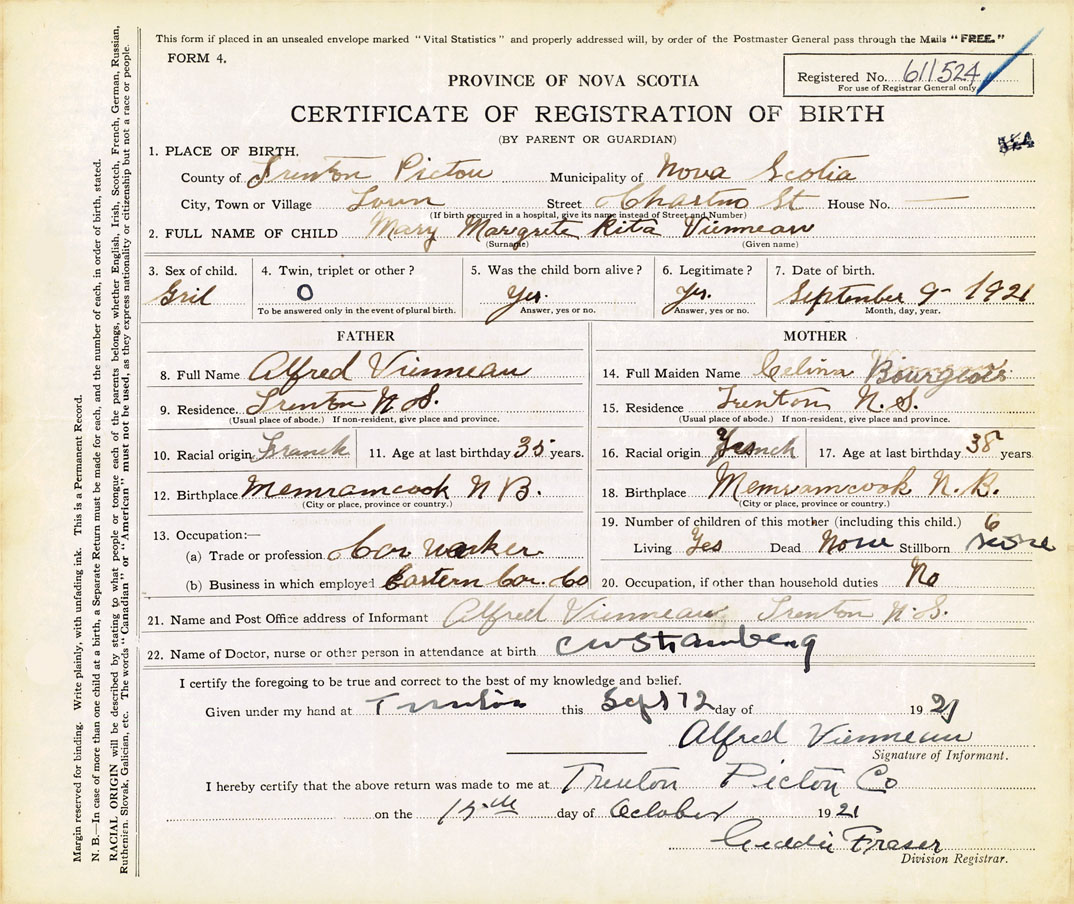 This form if placed in an unsealed envelope marked "Vital Statistics" and properly addressed will, by order of the Postmaster General pass through the Mails "FREE."
FORM 4.
Registered No. 611524
For use of Registrar General only
PROVINCE OF NOVA SCOTIA
CERTIFICATE OF REGISTRATION OF BIRTH
(BY PARENT OR GUARDIAN)
1. PLACE OF BIRTH.
County of Trenton Pictou Municipality of Nova Scotia
City, Town or Village Town Street House No.
St
(If birth occurred in a hospital, give its name instead of Street and Number)
2. FULL NAME OF CHILD Mary Margrete Rita Vienneau
(Surname) (Given name)
3. Sex of child. 4. Twin, triplet or other? 5. Was the child born alive? 6. Legitimate? 7. Date of birth.
Gril O Yes. Yes. September 9 - 1921
To be answered only in the event of plural birth. Answer, yes or no. Answer, yes or no. Month, day, year.
FATHER
8. Full Name Alfred Vienneau
9. Residence. Trenton N.S.
(Usual place of abode.) If non-resident, give place and province.
10. Racial origin Franch 11. Age at last birthday 35 years.
12. Birthplace Memramcook N B.
(City or place, province or country.)
13. Occupation:—
(a) Trade or profession Car Worker
(b) Business in which employed Eastern Car. Co
MOTHER
14. Full Maiden Name Celina Bourgeois
15. Residence Trenton N.S.
(Usual place of abode.) If non-resident, give place and province.
16. Racial origin French 17. Age at last birthday 38 years
18. Birthplace Memramcook N.B.
(City or place, province or country.)
19. Number of children of this mother (including this child.) 6
Living Yes Dead None Stillborn None
20. Occupation, if other than household duties No
21. Name and Post Office address of Informant Alfred Vienneau Trenton N.S.
22. Name of Doctor, nurse or other person in attendance at birth
I certify the foregoing to be true and correct to the best of my knowledge and belief.
Given under my hand at Trenton this Sept 12 day of 1921
Alfred Vienneau
Signature of Informant.
I hereby certify that the above return was made to me at Trenton Picton Co
on the day of October 1921
Fraser
Division Registrar.
Margin reserved for binding. Write plainly, with unfading ink. This is a Permanent Record.
N. B.—In case of more than one child at a birth, a Separate Return must be made for each, and the number of each, in order of birth, stated.
RACIAL ORIGIN will be described by stating to what people or tongue each of the parents belongs, whether English, Irish, Scotch, French, German, Russian,
Ruthenian, Slovak, Galician, etc. The words "Canadian" or "American" must not be used, as they express nationality or citizenship but not a race or people.